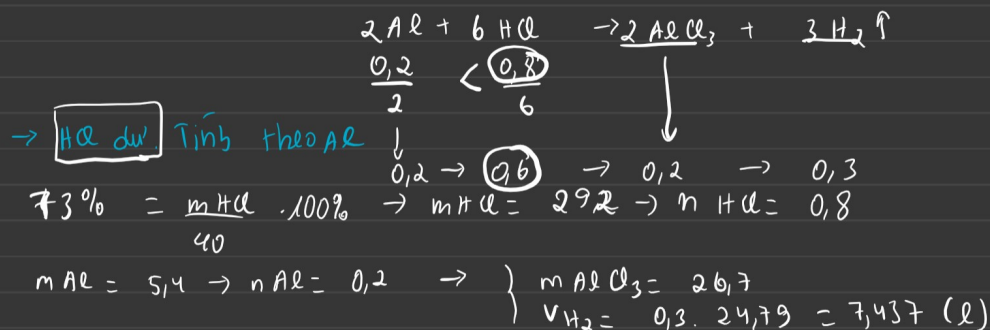 2Al + 6 HCl → 2 AlCl₃ + 3 H₂ ↑
0,2/2 < 0,8/6
→ HCl dư. Tính theo Al
0,2 → 0,6 → 0,2 → 0,3
73% = mHCl/40 .100% → mHCl = 292 → n HCl = 0,8
mAl = 5,4 → nAl = 0,2 → } mAlCl₃ = 26,7
VH₂ = 0,3. 24,79 = 7,437 (l)